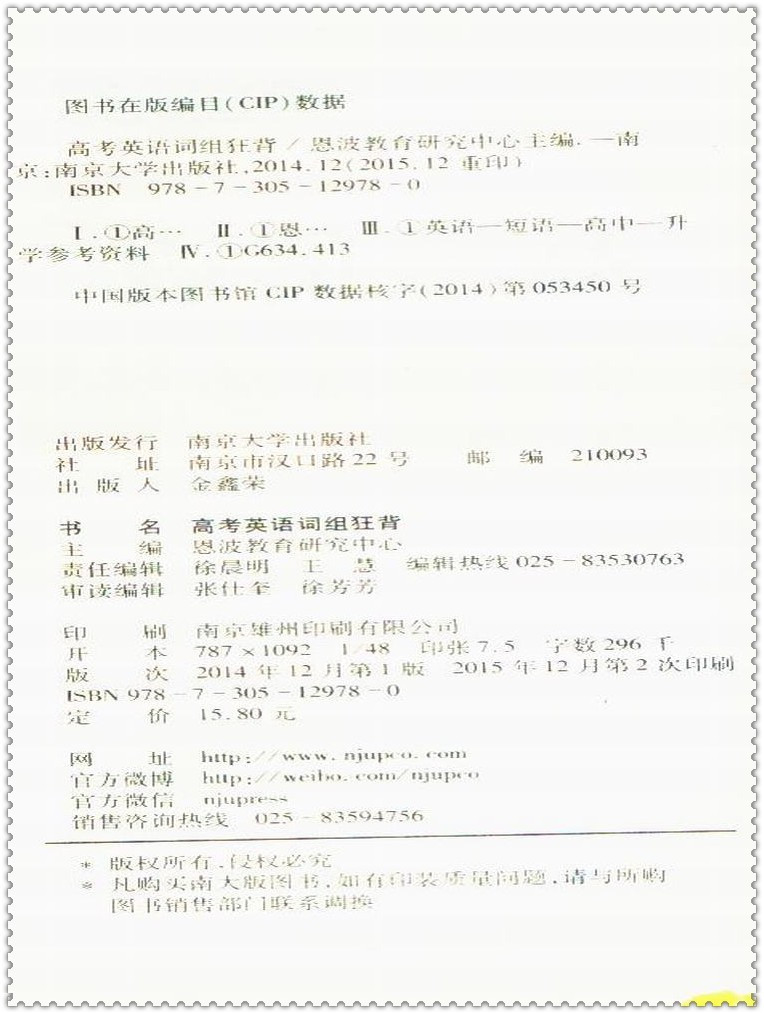 图书在版编目(CIP)数据
高考英语词组狂背 / 恩波教育研究中心主编. —南
京:南京大学出版社,2014.12(2015.12 重印)
ISBN 978-7-305-12978-0
Ⅰ.①高… Ⅱ.①恩… Ⅲ.①英语—短语—高中—升
学参考资料 Ⅳ.①G634.413
中国版本图书馆 CIP 数据核字(2014)第 053450 号
出版发行 南京大学出版社
社 址 南京市汉口路22号 邮 编 210093
出 版 人 金鑫荣
书 名 高考英语词组狂背
主 编 恩波教育研究中心
责任编辑 徐晨明 王 慧 编辑热线 025-83530763
审读编辑 张仕奎 徐芳芳
印 刷 南京雄州印刷有限公司
开 本 787×1092 1/48 印张 7.5 字数 296 千
版 次 2014 年 12 月第 1 版 2015 年 12 月第 2 次印刷
ISBN 978-7-305-12978-0
定 价 15.80 元
网 址 http://www.njupco.com
官方微博 http://weibo.com/njupco
官方微信 njupress
销售咨询热线 025-83594756
* 版权所有,侵权必究
* 凡购买南大版图书,如有印装质量问题,请与所购
图书销售部门联系调换